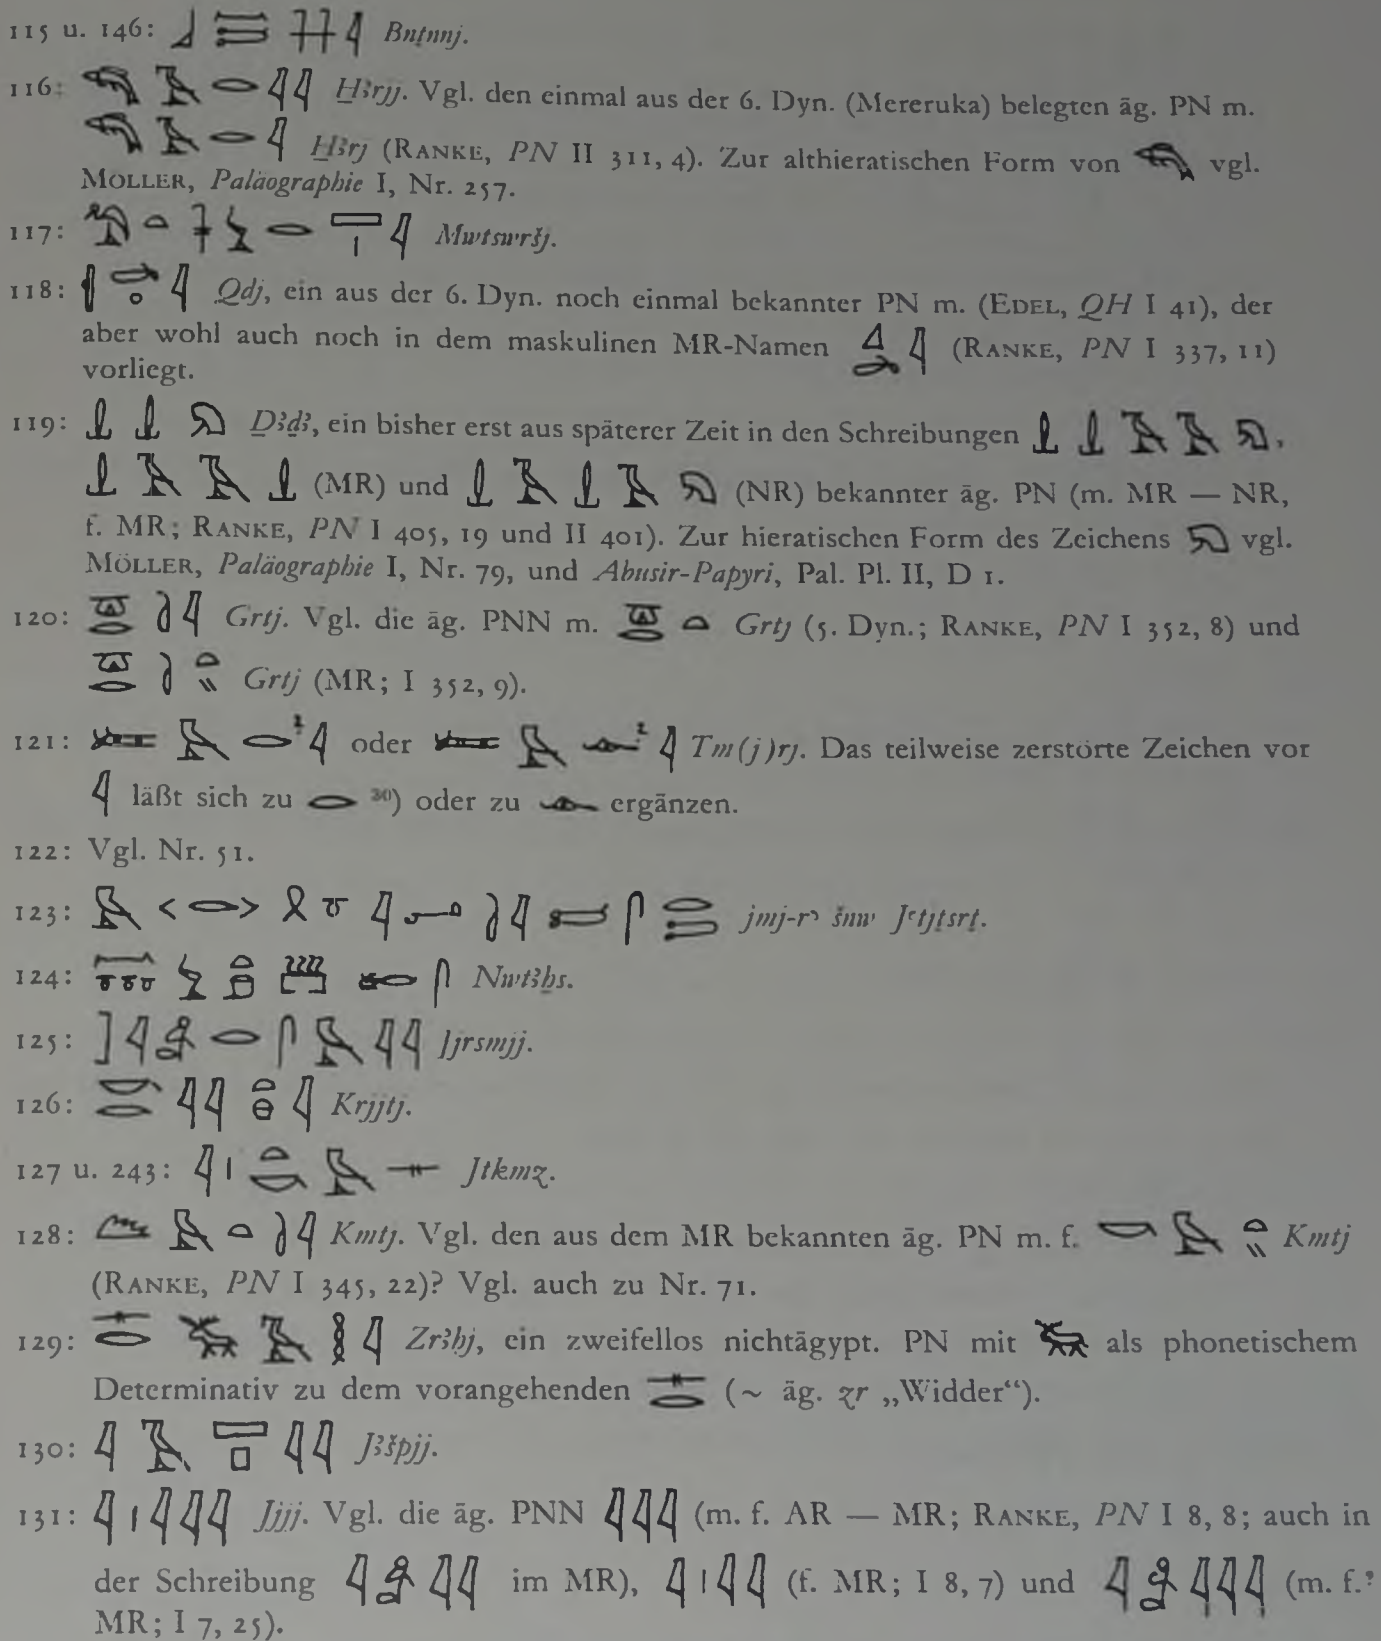 115 u. 146: 𓃀 𓍿𓈖 𓇒 𓇋 Bnṯnnj.
116: 𓆞 𓄿 𓂋 𓇋𓇋 H̱ꜣrjj. Vgl. den einmal aus der 6. Dyn. (Mereruka) belegten äg. PN m.
𓆞 𓄿 𓂋 𓇋 H̱ꜣrj (RANKE, PN II 311, 4). Zur althieratischen Form von 𓆞 vgl.
MÖLLER, Paläographie I, Nr. 257.
117: Mwtswršj.
118: Qdj, ein aus der 6. Dyn. noch einmal bekannter PN m. (EDEL, QH I 41), der
aber wohl auch noch in dem maskulinen MR-Namen (RANKE, PN I 337, 11)
vorliegt.
119: Ḏꜣḏꜣ, ein bisher erst aus späterer Zeit in den Schreibungen
(MR) und (NR) bekannter äg. PN (m. MR — NR,
f. MR; RANKE, PN I 405, 19 und II 401). Zur hieratischen Form des Zeichens vgl.
MÖLLER, Paläographie I, Nr. 79, und Abusir-Papyri, Pal. Pl. II, D 1.
120: Grtj. Vgl. die äg. PNN m. Grtj (5. Dyn.; RANKE, PN I 352, 8) und
Grtj (MR; I 352, 9).
121: oder Tm(j)rj. Das teilweise zerstörte Zeichen vor
𓇋 läßt sich zu 𓂋 ³⁰) oder zu ergänzen.
122: Vgl. Nr. 51.
123: 𓅓 <𓂋> 𓍶 𓏌 𓇋 𓂝 𓍘𓇋 𓍿 𓋴 𓂋𓍿 jmj-rꜣ šnw Jꜥtjṯsrṯ.
124: Nwtꜣẖs.
125: ]𓇋𓀁 𓂋 𓋴 𓅓 𓇋𓇋 ]jrsmjj.
126: Krjjtj.
127 u. 243: 𓇋𓏤 𓏏𓎡 𓅓 𓊃 Jtkmz.
128: 𓆎 𓅓 𓏏 𓍘𓇋 Kmtj. Vgl. den aus dem MR bekannten äg. PN m. f. 𓎡 𓅓 𓏏𓏭 Kmtj
(RANKE, PN I 345, 22)? Vgl. auch zu Nr. 71.
129: Zrꜣḥj, ein zweifellos nichtägypt. PN mit als phonetischem
Determinativ zu dem vorangehenden 𓊃𓂋 (~ äg. zr „Widder“).
130: 𓇋 𓄿 𓈙𓊪 𓇋𓇋 Jꜣšpjj.
131: 𓇋𓏤𓇋𓇋𓇋 Jjjj. Vgl. die äg. PNN 𓇋𓇋𓇋 (m. f. AR — MR; RANKE, PN I 8, 8; auch in
der Schreibung 𓇋𓀁𓇋𓇋 im MR), 𓇋𓏤𓇋𓇋 (f. MR; I 8, 7) und 𓇋𓀁𓇋𓇋𓇋 (m. f.?
MR; I 7, 25).